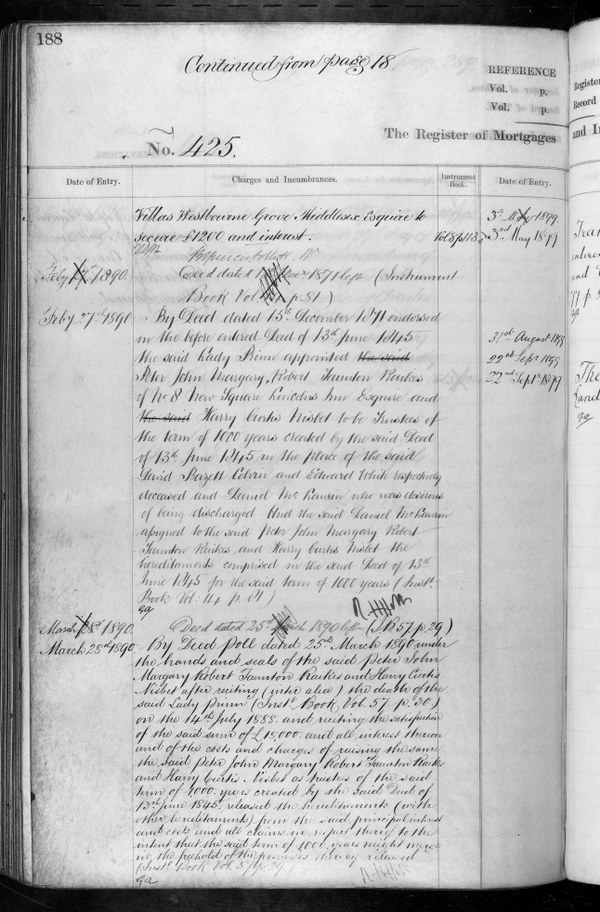 188
Continued from page 18
REFERENCE
Vol. p.
Vol. p.
The Register of Mortgages
No. 425.
Date of Entry.
Charges and Incumbrances.
Instrument Book.
Date of Entry.
Villas Westbourne Grove Middlesex Esquire to
secure £1200 and interest.
3rd May 1899.
3rd May 1899
Feby 1890.
Deed dated 1871 left (Instrument
Book Vol p. 81)
Feby 27th 1890
By Deed dated 15th December 1871 endorsed
in the before entered Deed of 13th June 1845
the said Lady Prinn appointed the said
Peter John Margary, Robert Taunton Raikes
of No 8 New Square Lincolns Inn Esquire and
the said Harry Curtis Nisbet to be Trustees of
the term of 1000 years created by the said Deed
of 13th June 1845 in the place of the said
David Colvin and Edward White respectively
deceased and Daniel McLaurin who was desirous
of being discharged And the said Daniel McLaurin
assigned to the said Peter John Margary Robert
Taunton Raikes and Harry Curtis Nisbet the
hereditaments comprised in the said Deed of 13th
June 1845 for the said term of 1000 years (Inst.
Book Vol. 44 p. 81)
31st August 1899
22nd Sept 1899
22nd Sept 1899
March 28th 1890.
Deed dated 25th March 1890 left (I.B. 57 p. 29)
March 28th 1890
By Deed poll dated 25th March 1890 under
the hands and seals of the said Peter John
Margary Robert Taunton Raikes and Harry Curtis
Nisbet after reciting (inter alia) the death of the
said Lady Prinn (Inst. Book Vol. 57 p. 30)
on the 14th July 1888 and reciting the satisfaction
of the said sum of £15,000 and all interest thereon
and of the costs and charges of raising the same
the said Peter John Margary Robert Taunton Raikes
and Harry Curtis Nisbet as trustees of the said
term of 1,000 years created by the said Deed of
13th June 1845 released the hereditaments (with
other hereditaments) from the said principal interest
and costs and all claims in respect thereof to the
intent that the said term of 1000 years might merge
in the freehold of the premises thereby released
(Inst. Book Vol. 57 p. 29)
Register
Record
and In